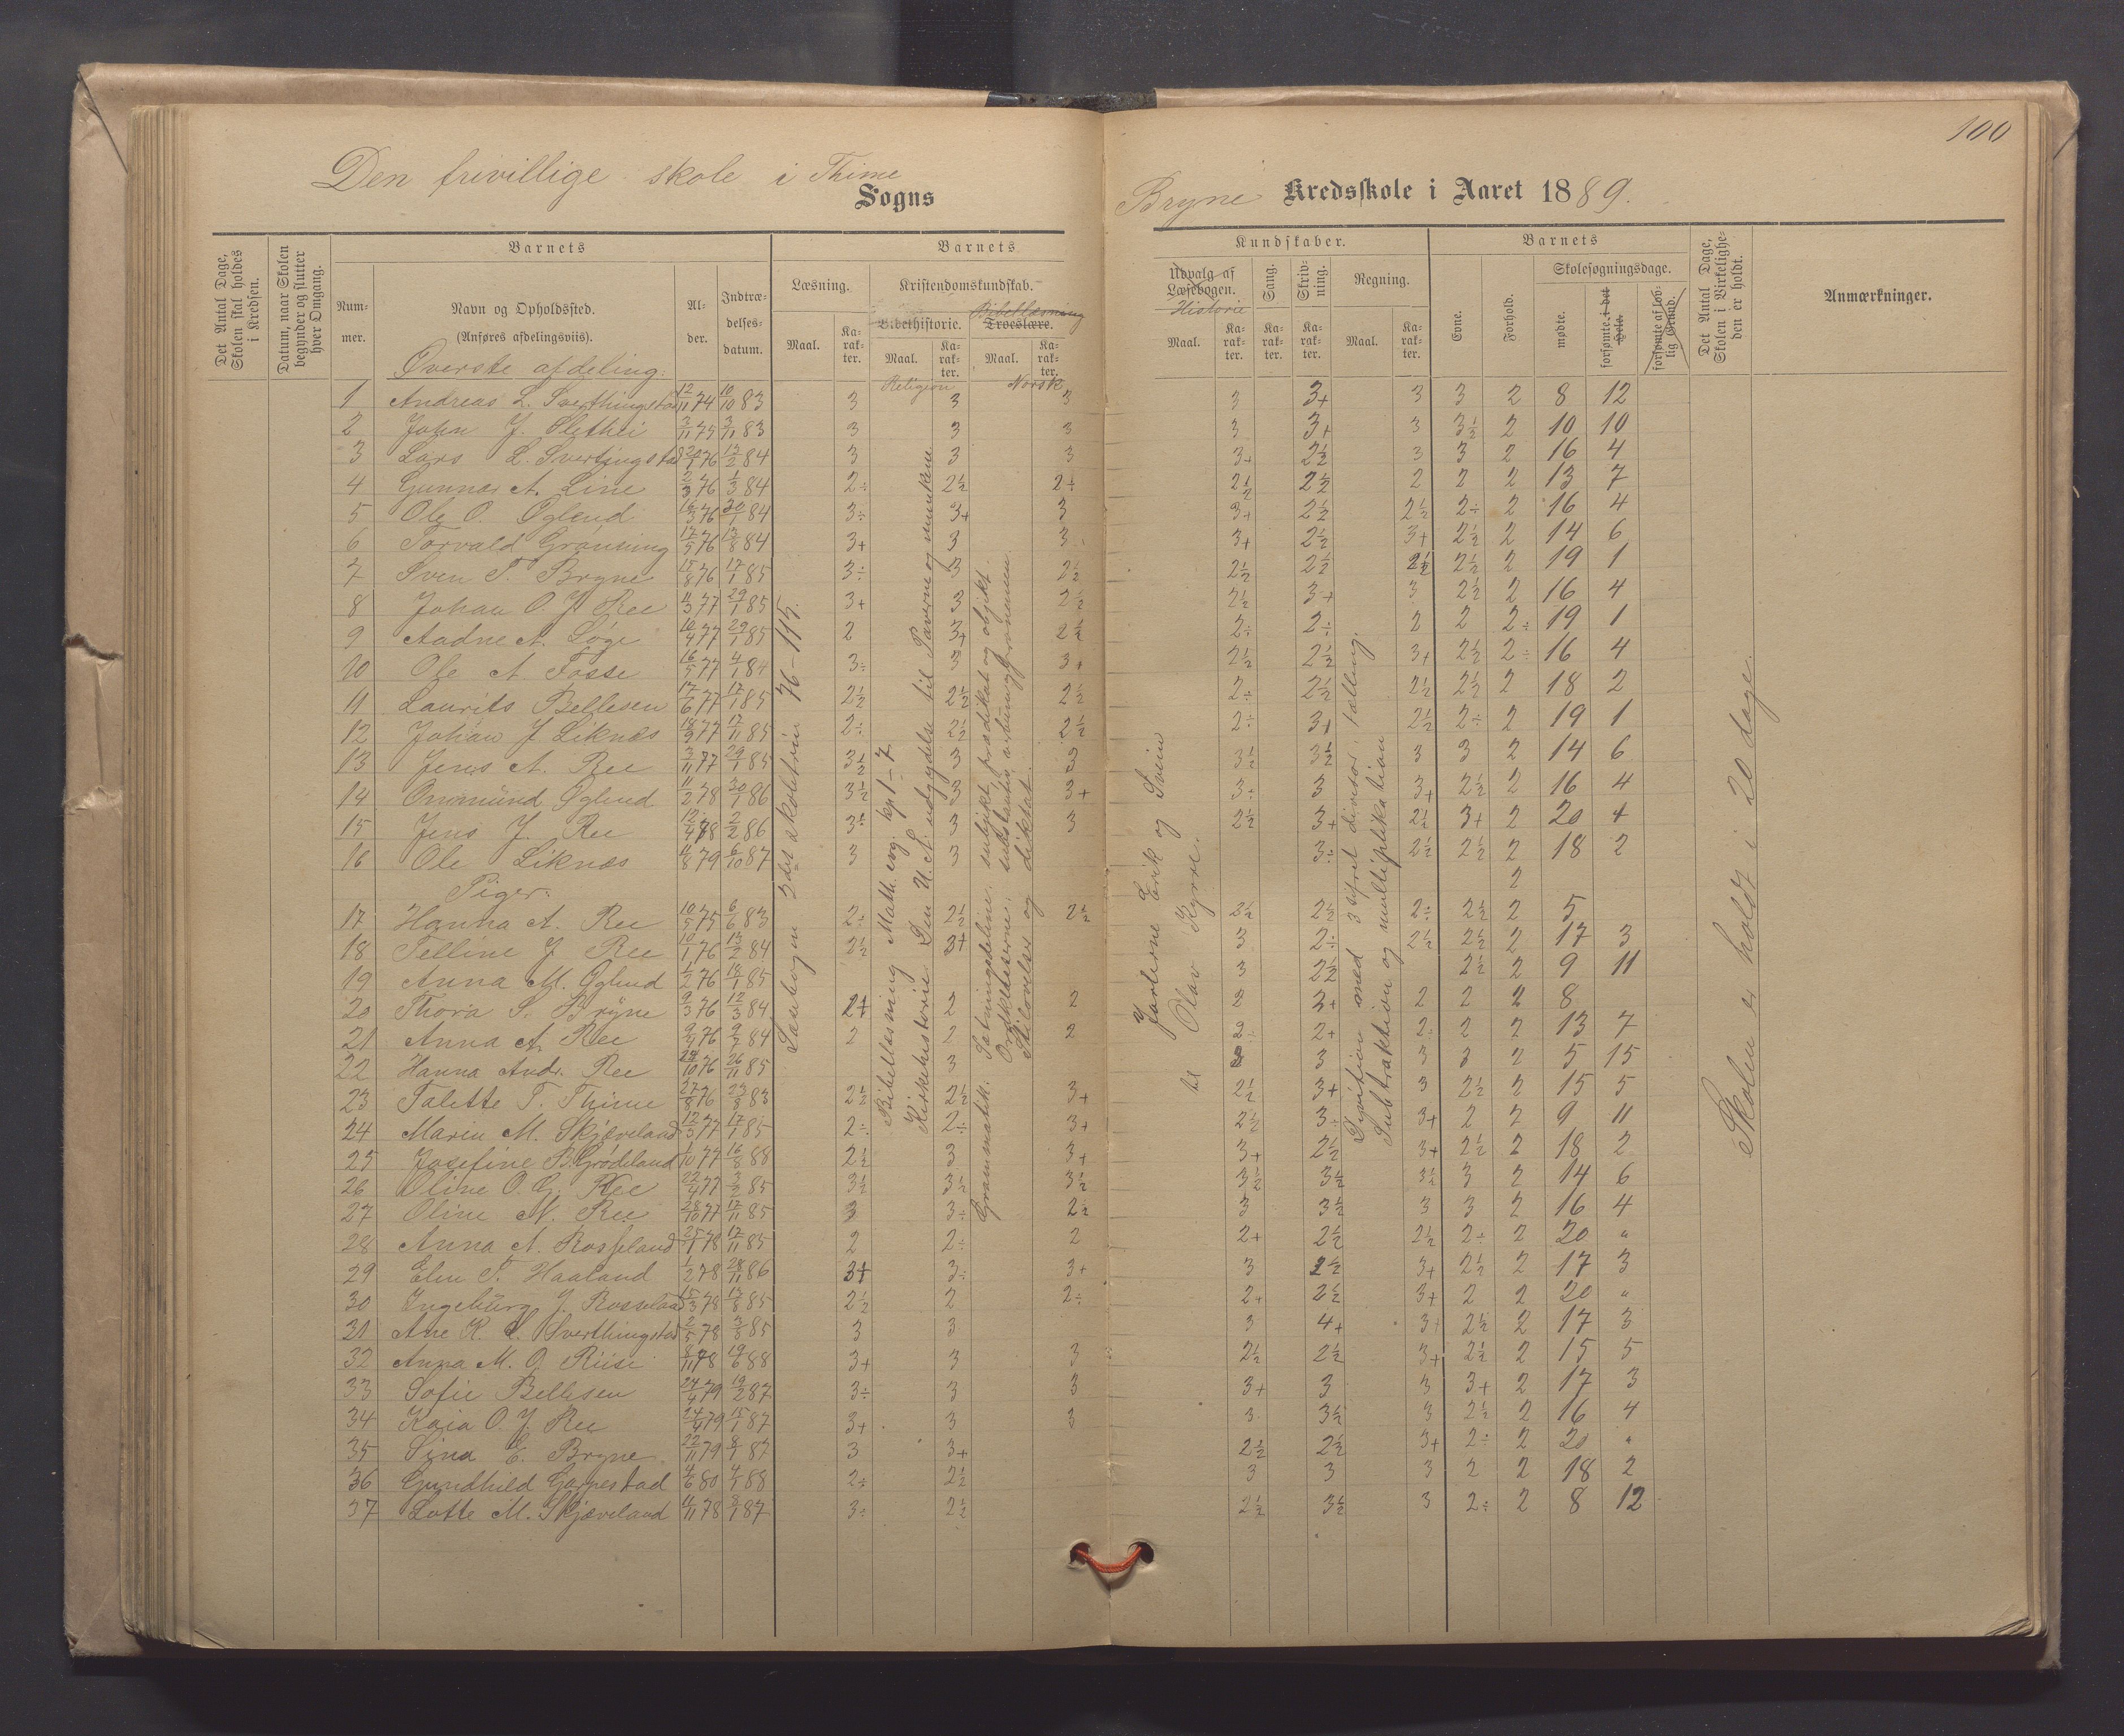 100
Den frivillige skole i Thime
Sogns
Bryne Kredsskole i Aaret 1889.
Det Antal Dage, Skolen skal holdes i Kredsen.
Datum, naar Skolen begynder og slutter hver Omgang.
Barnets
Num-
mer.
Navn og Opholdssted.
(Anføres afdelingsviis).
Al-
der.
Indtræ-
delses-
datum.
Barnets
Læsning.
Maal.
Ka-
rak-
ter.
Kristendomskundskab.
Bibelhistorie.
Bibellæsning
Troeslære.
Maal.
Ka-
rak-
ter.
Maal.
Ka-
rak-
ter.
Religion
Norsk
Kundskaber.
Udvalg af
Læsebogen.
Historie
Maal.
Ka-
rak-
ter.
Sang.
Ka-
rak-
ter.
Skriv-
ning.
Ka-
rak-
ter.
Regning.
Maal.
Ka-
rak-
ter.
Barnets
Evne.
Forhold.
Skolesøgningsdage.
mødte.
forsømte i det Hele.
forsømte af lov-
lig Grund.
Det Antal Dage, Skolen i Virkelighe-
den er holdt.
Anmærkninger.
Øverste afdeling:
1 Andreas L. Sverthingstad 12/11 74 10/10 83 3 3 3 3 3+ 3 3 2 8 12
2 John J. Slethei 2/11 75 3/11 83 3 3 3 3 3+ 3 3½ 2 10 10
3 Lars L. Svertingstad 76 12/2 84 3 3 3 3+ 2½ 3 3 2 16 4
4 Gunnar A. Line 2/3 76 1/3 84 2÷ 2½ 2÷ 2½ 2½ 2 2 2 13 7
5 Ole O. Øglend 16/3 76 30/1 84 3÷ 3+ 3 3+ 2½ 2½ 2÷ 2 16 4
6 Torvald Gransing 17/5 76 13/8 84 3+ 3 3 3+ 2½ 3+ 2½ 2 14 6
7 Sven T. Bryne 15/8 76 17/1 85 3÷ 3 2½ 2½ 2½ 2½ 2½ 2 19 1
8 Johan O. J. Ree 11/3 77 29/1 85 3+ 3 2½ 2½ 3+ 3 2½ 2 16 4
9 Aadne A. Løge 10/4 77 29/1 85 2 3+ 2½ 2÷ 2÷ 2 2 2÷ 19 1
10 Ole A Fosse 16/5 77 4/1 84 3÷ 3 3+ 2½ 2½ 3+ 2½ 2÷ 16 4
11 Laurits Bellesen 17/6 77 17/1 85 2½ 2½ 2½ 2÷ 2½ 2½ 2½ 2 18 2
12 Johan J Liknæs 18/9 77 17/11 85 2÷ 2½ 2½ 2÷ 3+ 2½ 2÷ 2 19 1
13 Jens A. Ree 3/11 77 29/1 85 3½ 3 3 3½ 3½ 3 3 2 14 6
14 Ommund Øglend 11/2 78 30/1 86 3½ 3 3+ 3÷ 3 3+ 2½ 2 16 4
15 Jens J. Ree 12/4 78 2/2 86 3 3 2½ 3+ 2½ 3+ 2 20
16 Ole Liknæs 11/8 79 6/10 87 3 3 3÷ 2½ 2½ 2 18 2
Piger: 2
17 Hanna A. Ree 10/5 75 6/6 83 2÷ 2½ 2½ 2½ 2½ 2÷ 2½ 2 5
18 Telline J Ree 10/1 76 13/2 84 2½ 3+ 3 2÷ 2½ 2½ 2 17 3
19 Anna M. Øglend 1/2 76 18/1 85 3 2½ 2½ 2 9 11
20 Thora S. Bryne 9/3 76 12/3 84 2+ 2 2 2 2+ 2 2 2 8
21 Anna A. Ree 9/4 76 9/7 84 2 2 2 2÷ 2+ 2÷ 2 2 13 7
22 Hanna Andr. Ree 76 26/11 85 3 3 3 3 2 5 15
23 Talette T. Thime 27/8 76 23/8 83 2½ 2½ 3+ 2½ 3+ 3 2½ 2 15 5
24 Marin M. Skjæveland 12/3 77 17/1 85 2÷ 2÷ 3+ 2½ 3÷ 3+ 2 2 9 11
25 Josefine B. Grødeland 1/10 77 16/8 88 2½ 3 3+ 3+ 2½ 3+ 2½ 2 18 2
26 Oline O. G. Ree 22/4 77 3/2 85 3½ 3½ 3½ 3½ 3½ 3½ 3 2 14 6
27 Oline N. Ree 28/10 77 17/11 85 3 3÷ 2½ 3 3½ 3 3 2 16 4
28 Anna A. Rosseland 25/1 78 17/11 85 2 2÷ 2 2+ 2½ 2½ 2÷ 2 20 "
29 Elen T. Haaland 1/2 78 28/11 86 3+ 3÷ 3+ 3 2½ 3+ 2½ 2 17 3
30 Ingeborg J. Rosseland 15/3 78 13/8 85 2½ 2 2÷ 2+ 2½ 3+ 2 2 20 "
31 Ane K. L. Sverthingstad 2/5 78 3/8 85 3 3 3 4+ 3+ 2½ 2 17 3
32 Anna M. O. Riise 8/11 78 19/6 88 3+ 3 3 2½ 2½ 3+ 2½ 2 15 5
33 Sofie Bellesen 24/4 79 19/2 87 3÷ 3 3 3+ 3 3 3+ 2 17 3
34 Kaia O. J. Ree 79 15/1 87 3+ 3 3 3 3½ 3 2½ 2 16 4
35 Sina E. Bryne 22/11 79 8/1 87 3 3+ 2½ 2½ 3+ 2÷ 2 20 "
36 Gundhild Garpestad 4/6 80 4/1 88 2÷ 2½ 3 3 3 2 2 18 2
37 Lotte M. Skjæveland 11/11 78 8/1 87 3÷ 2½ 2½ 3½ 3 2÷ 2 8 12
Læsebogen 2det skoletrin 76-115.
Bibellæsning Matth. evg. kp 1-7.
Kirkehistorie Den U. A. udgydelse til Paverne og munkene
Grammatik. Sætningsdelene: subjekt, prædikat og objekt.
Ordklasserne: substantiv, verbum, pronomen.
Stiløvelser og diktat.
Jarlerne Erik og Svein
til Olav Kyrre.
Division med 3 sifret divisor, tælling.
Subtraktion og multiplikation
Skolen er holdt i 20 dage.